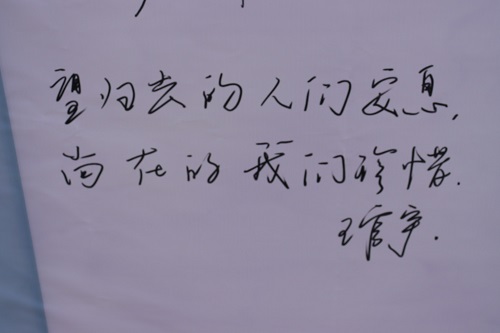 望归去的人们安息,
尚在的我们珍惜.